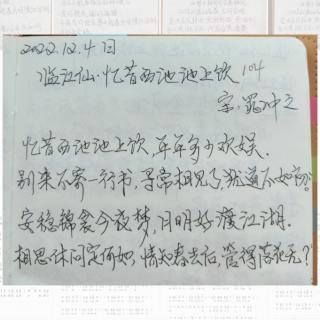 2022.12.4日
临江仙·忆昔西池池上饮 104
宋·晁冲之
忆昔西池池上饮，年年多少欢娱。
别来不寄一行书，寻常相见了，犹道不如初。
安稳锦衾今夜梦，月明好渡江湖。
相思休问定何如，情知春去后，管得落花无？